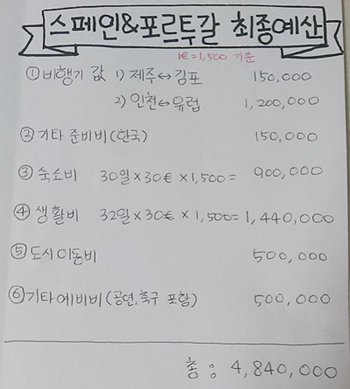 스페인&포르투갈 최종예산
1€=1,500 기준
① 비행기 값 1) 제주↔김포 150,000
2) 인천↔유럽 1,200,000
② 기타 준비비(한국) 150,000
③ 숙소비 30일×30€×1,500= 900,000
④ 생활비 32일×30€×1,500= 1,440,000
⑤ 도시이동비 500,000
⑥ 기타예비비(공연,축구 포함) 500,000
총: 4,840,000